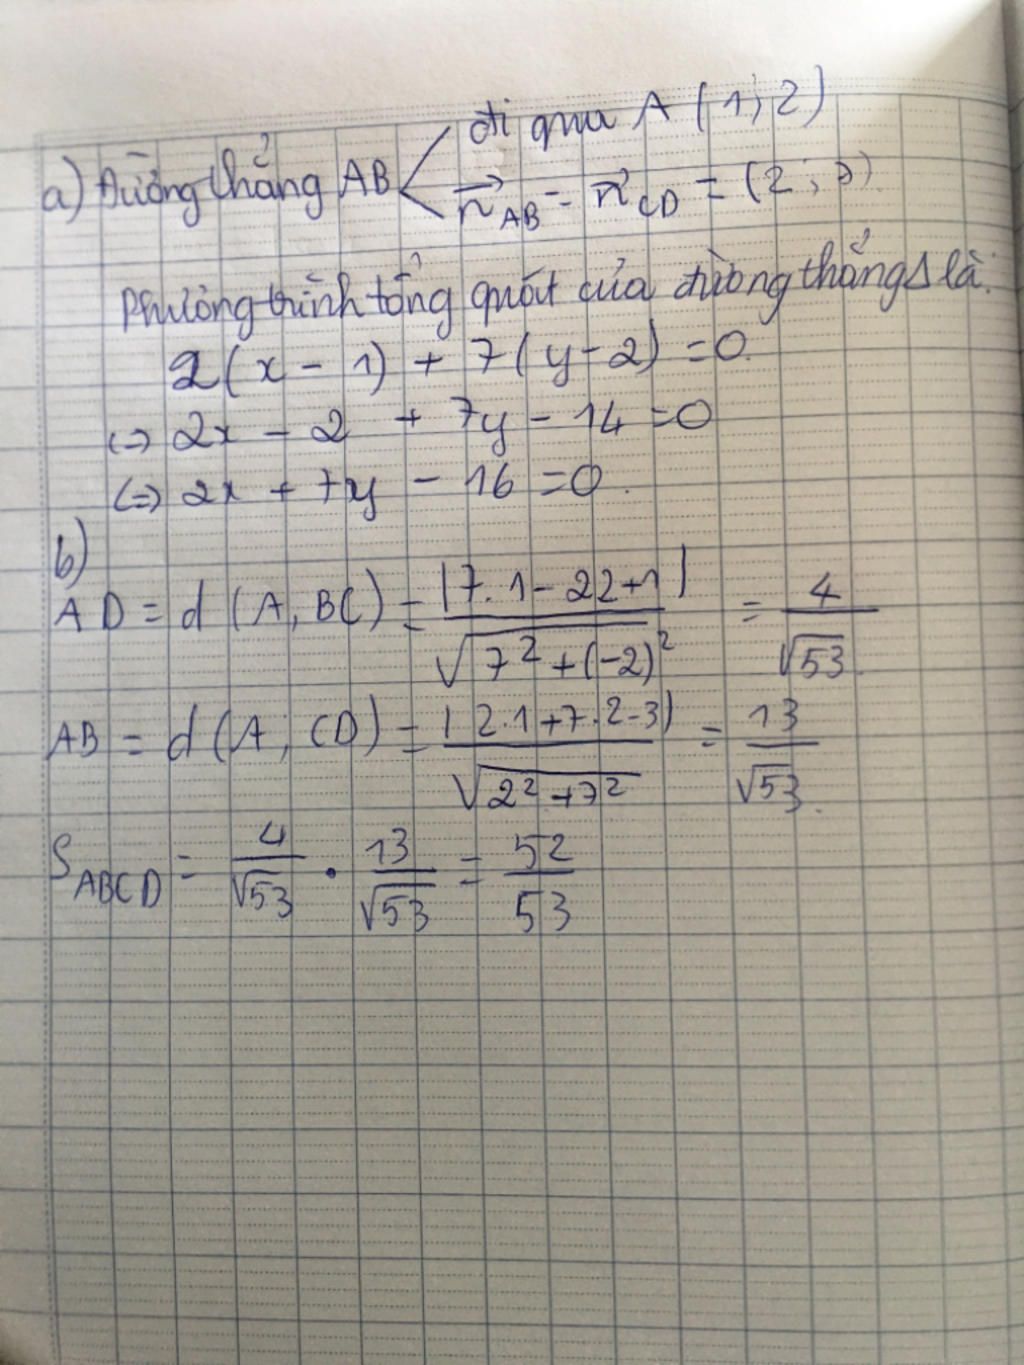 a) Đường thẳng AB < đi qua A (1; 2)
n⃗_AB = n⃗_CD = (2;
Phương trình tổng quát của đường thẳng Δ là:
2(x - 1) + 7(y - 2) = 0.
(=) 2x - 2 + 7y - 14 = 0
(=) 2x + 7y - 16 = 0.
b)
AD = d (A, BC) = |7.1 - 22 + 1| / √(7² + (-2)²) = 4/√53
AB = d (A, CD) = |2.1 + 7.2 - 3| / √(2² + 7²) = 13/√53.
S_ABCD = 4/√53 . 13/√53 = 52/53